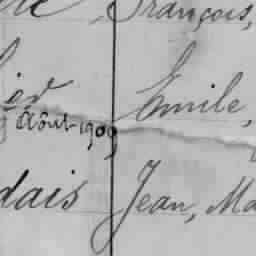 François,
Emile,
Août 1909
dais Jean, Ma